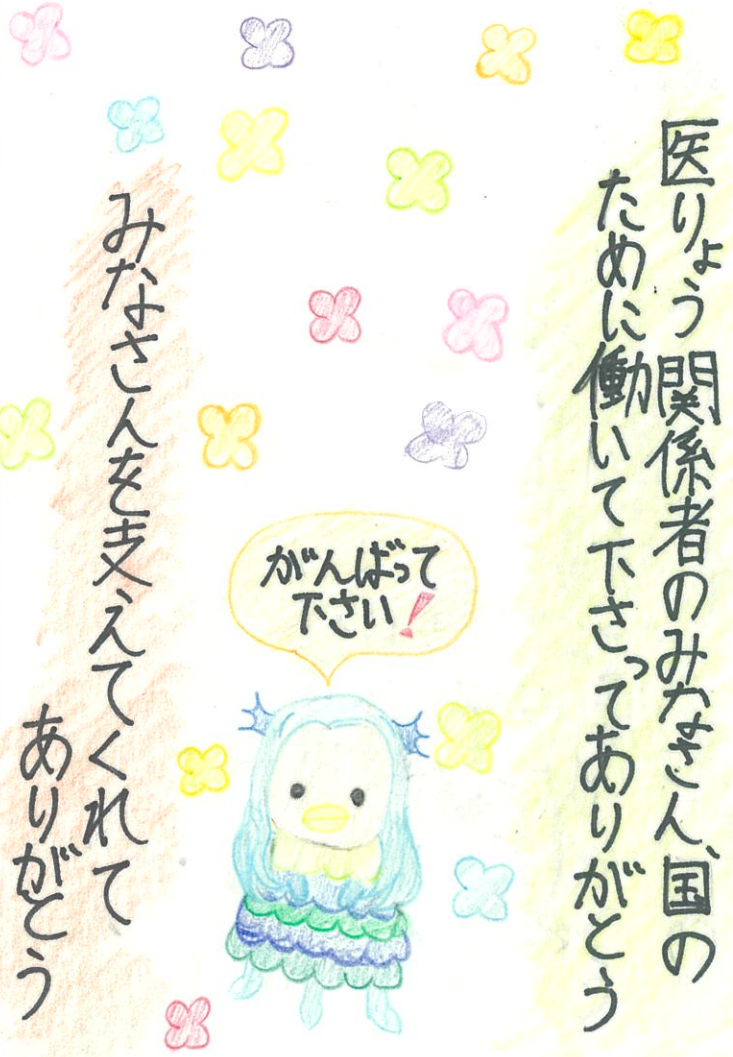 医りょう関係者のみなさん、国の
ために働いて下さってありがとう
がんばって
下さい!
みなさんを支えてくれて
ありがとう